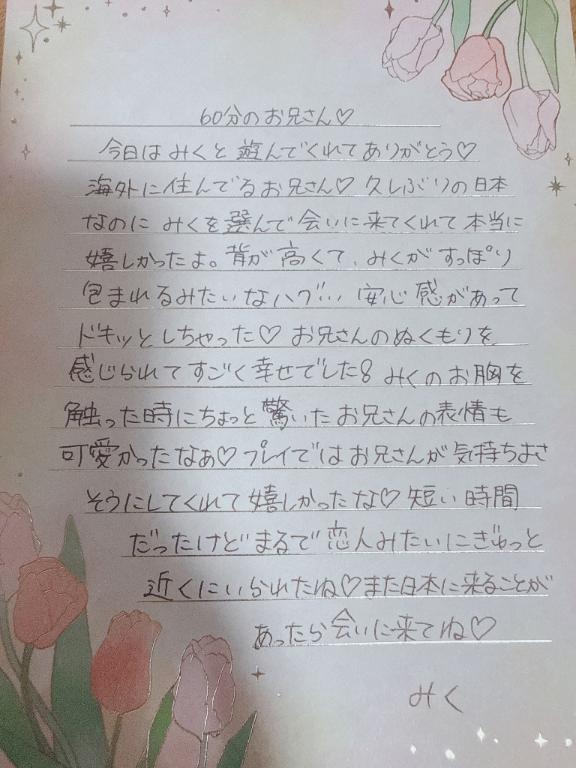 60分のお兄さん♡
今日はみくと遊んでくれてありがとう♡
海外に住んでるお兄さん♡久しぶりの日本
なのにみくを選んで会いに来てくれて本当に
嬉しかったよ。背が高くて、みくがすっぽり
包まれるみたいなハグ…安心感があって
ドキッとしちゃった♡お兄さんのぬくもりを
感じられてすごく幸せでした♡みくのお胸を
触った時にちょっと驚いたお兄さんの表情も
可愛かったなぁ♡プレイではお兄さんが気持ちよさ
そうにしてくれて嬉しかったな♡短い時間
だったけどまるで恋人みたいにぎゅっと
近くにいられたね♡また日本に来ることが
あったら会いに来てね♡
みく